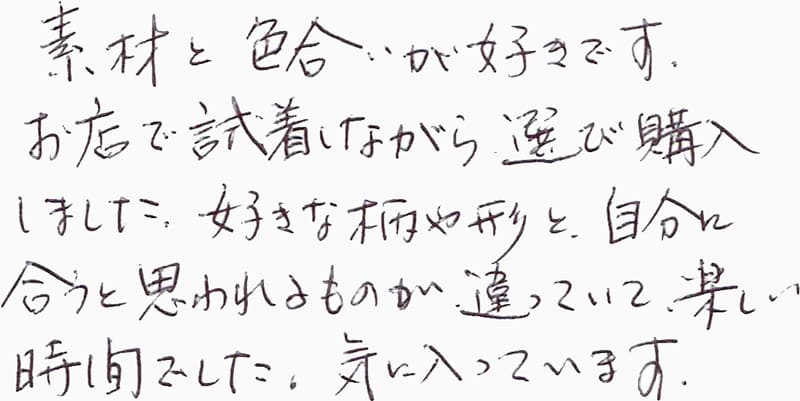 素材と色合いが好きです.
お店で試着しながら選び購入
しました. 好きな柄や形と、自分に
合うと思われるものが違っていて、楽しい
時間でした. 気に入っています.